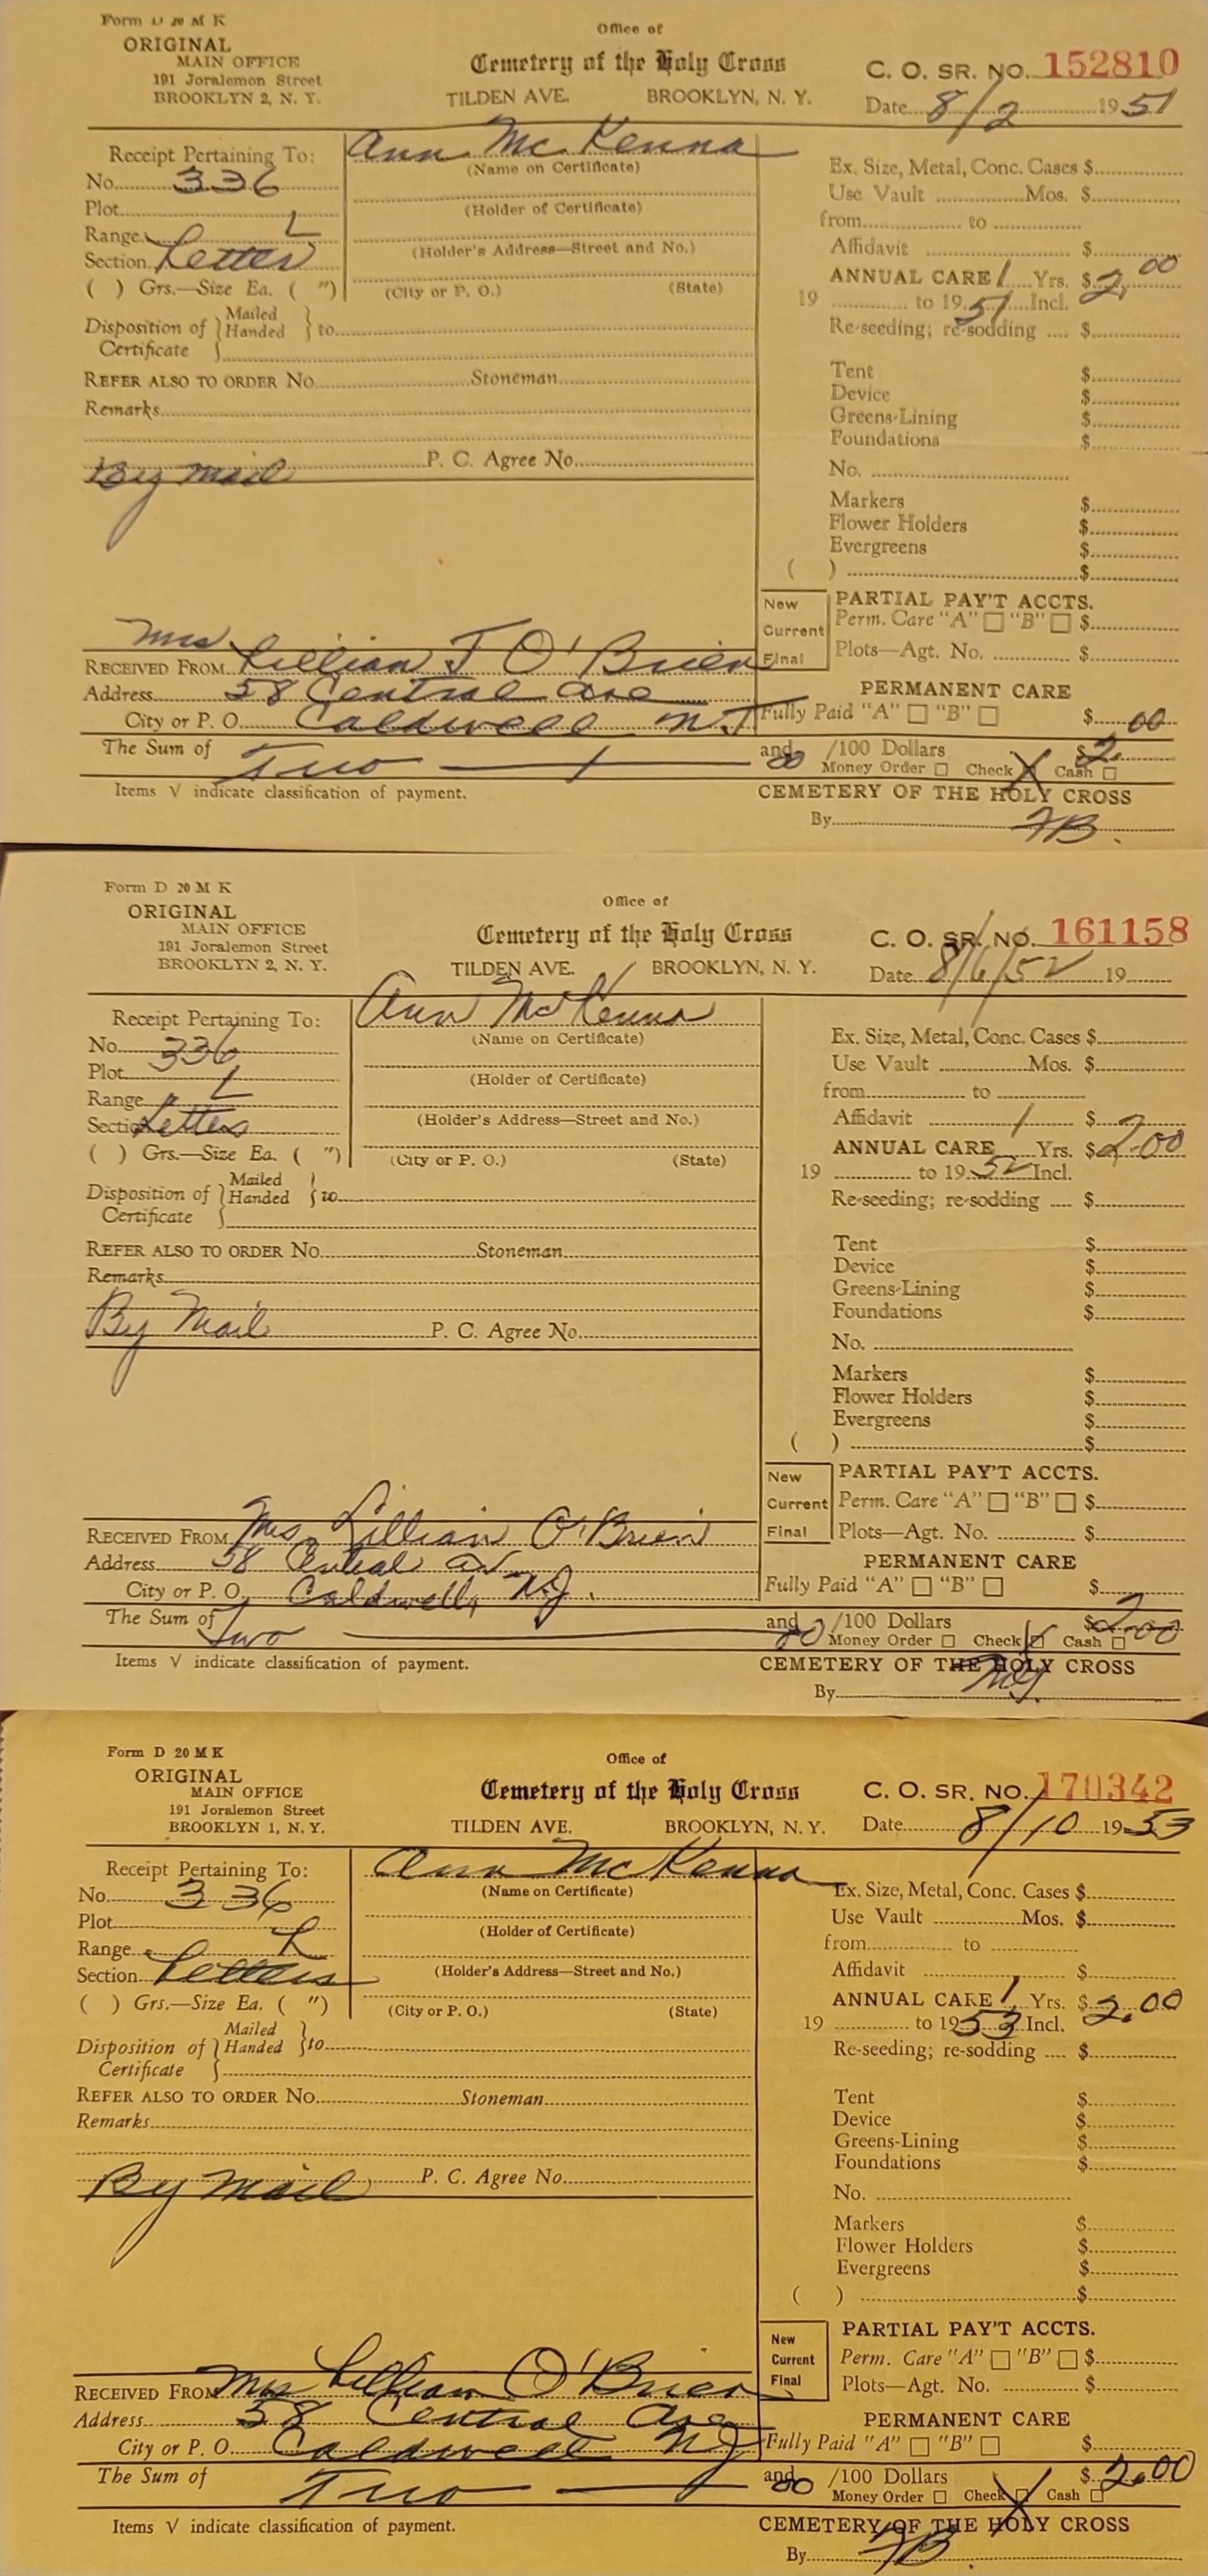 Form D 20 M K
ORIGINAL
MAIN OFFICE
191 Joralemon Street
BROOKLYN 2, N. Y.
Office of
Cemetery of the Holy Cross
TILDEN AVE. BROOKLYN, N. Y.
C. O. SR. NO. 152810
Date 8/2 1951
Receipt Pertaining To:
Ann McKenna
(Name on Certificate)
No. 336
Plot
(Holder of Certificate)
Range L
Section Letter
(Holder's Address—Street and No.)
( ) Grs.—Size Ea. ( ")
(City or P. O.) (State)
Disposition of Certificate } Mailed Handed } to
REFER ALSO TO ORDER No. Stoneman
Remarks
By mail P. C. Agree No.
Ex. Size, Metal, Conc. Cases $
Use Vault Mos. $
from to
Affidavit $
ANNUAL CARE 1 Yrs. $2.00
19 to 1951 Incl.
Re-seeding; re-sodding $
Tent $
Device $
Greens-Lining $
Foundations $
No.
Markers $
Flower Holders $
Evergreens $
( ) $
New
Current
Final
PARTIAL PAY'T ACCTS.
Perm. Care "A" "B" $
Plots—Agt. No. $
PERMANENT CARE
Fully Paid "A" "B" $
RECEIVED FROM Mrs Lillian J O'Brien
Address 58 Central Ave
City or P. O. Caldwell N J
The Sum of Two and 00/100 Dollars $2.00
Money Order Check X Cash
Items √ indicate classification of payment.
CEMETERY OF THE HOLY CROSS
By
Form D 20 M K
ORIGINAL
MAIN OFFICE
191 Joralemon Street
BROOKLYN 2, N. Y.
Office of
Cemetery of the Holy Cross
TILDEN AVE. BROOKLYN, N. Y.
C. O. SR. NO. 161158
Date 8/6/52 19
Receipt Pertaining To:
Ann McKenna
(Name on Certificate)
No. 336
Plot
(Holder of Certificate)
Range L
Section Letters
(Holder's Address—Street and No.)
( ) Grs.—Size Ea. ( ")
(City or P. O.) (State)
Disposition of Certificate } Mailed Handed } to
REFER ALSO TO ORDER No. Stoneman
Remarks
By Mail P. C. Agree No.
Ex. Size, Metal, Conc. Cases $
Use Vault Mos. $
from to
Affidavit $
ANNUAL CARE 1 Yrs. $2.00
19 to 1952 Incl.
Re-seeding; re-sodding $
Tent $
Device $
Greens-Lining $
Foundations $
No.
Markers $
Flower Holders $
Evergreens $
( ) $
New
Current
Final
PARTIAL PAY'T ACCTS.
Perm. Care "A" "B" $
Plots—Agt. No. $
PERMANENT CARE
Fully Paid "A" "B" $
RECEIVED FROM Mrs. Lillian O'Brien
Address 58 Central Av
City or P. O. Caldwell, N.J.
The Sum of Two and 00/100 Dollars $2.00
Money Order Check Cash
Items √ indicate classification of payment.
CEMETERY OF THE HOLY CROSS
By
Form D 20 M K
ORIGINAL
MAIN OFFICE
191 Joralemon Street
BROOKLYN 1, N. Y.
Office of
Cemetery of the Holy Cross
TILDEN AVE. BROOKLYN, N. Y.
C. O. SR. NO. 170342
Date 8/10 1953
Receipt Pertaining To:
Ann McKenna
(Name on Certificate)
No. 336
Plot
(Holder of Certificate)
Range L
Section Letters
(Holder's Address—Street and No.)
( ) Grs.—Size Ea. ( ")
(City or P. O.) (State)
Disposition of Certificate } Mailed Handed } to
REFER ALSO TO ORDER No. Stoneman
Remarks
By Mail P. C. Agree No.
Ex. Size, Metal, Conc. Cases $
Use Vault Mos. $
from to
Affidavit $
ANNUAL CARE 1 Yrs. $2.00
19 to 1953 Incl.
Re-seeding; re-sodding $
Tent $
Device $
Greens-Lining $
Foundations $
No.
Markers $
Flower Holders $
Evergreens $
( ) $
New
Current
Final
PARTIAL PAY'T ACCTS.
Perm. Care "A" "B" $
Plots—Agt. No. $
PERMANENT CARE
Fully Paid "A" "B" $
RECEIVED FROM Mrs Lillian O'Brien
Address 58 Central Ave
City or P. O. Caldwell NJ
The Sum of Two and 00/100 Dollars $2.00
Money Order Check X Cash
Items √ indicate classification of payment.
CEMETERY OF THE HOLY CROSS
By